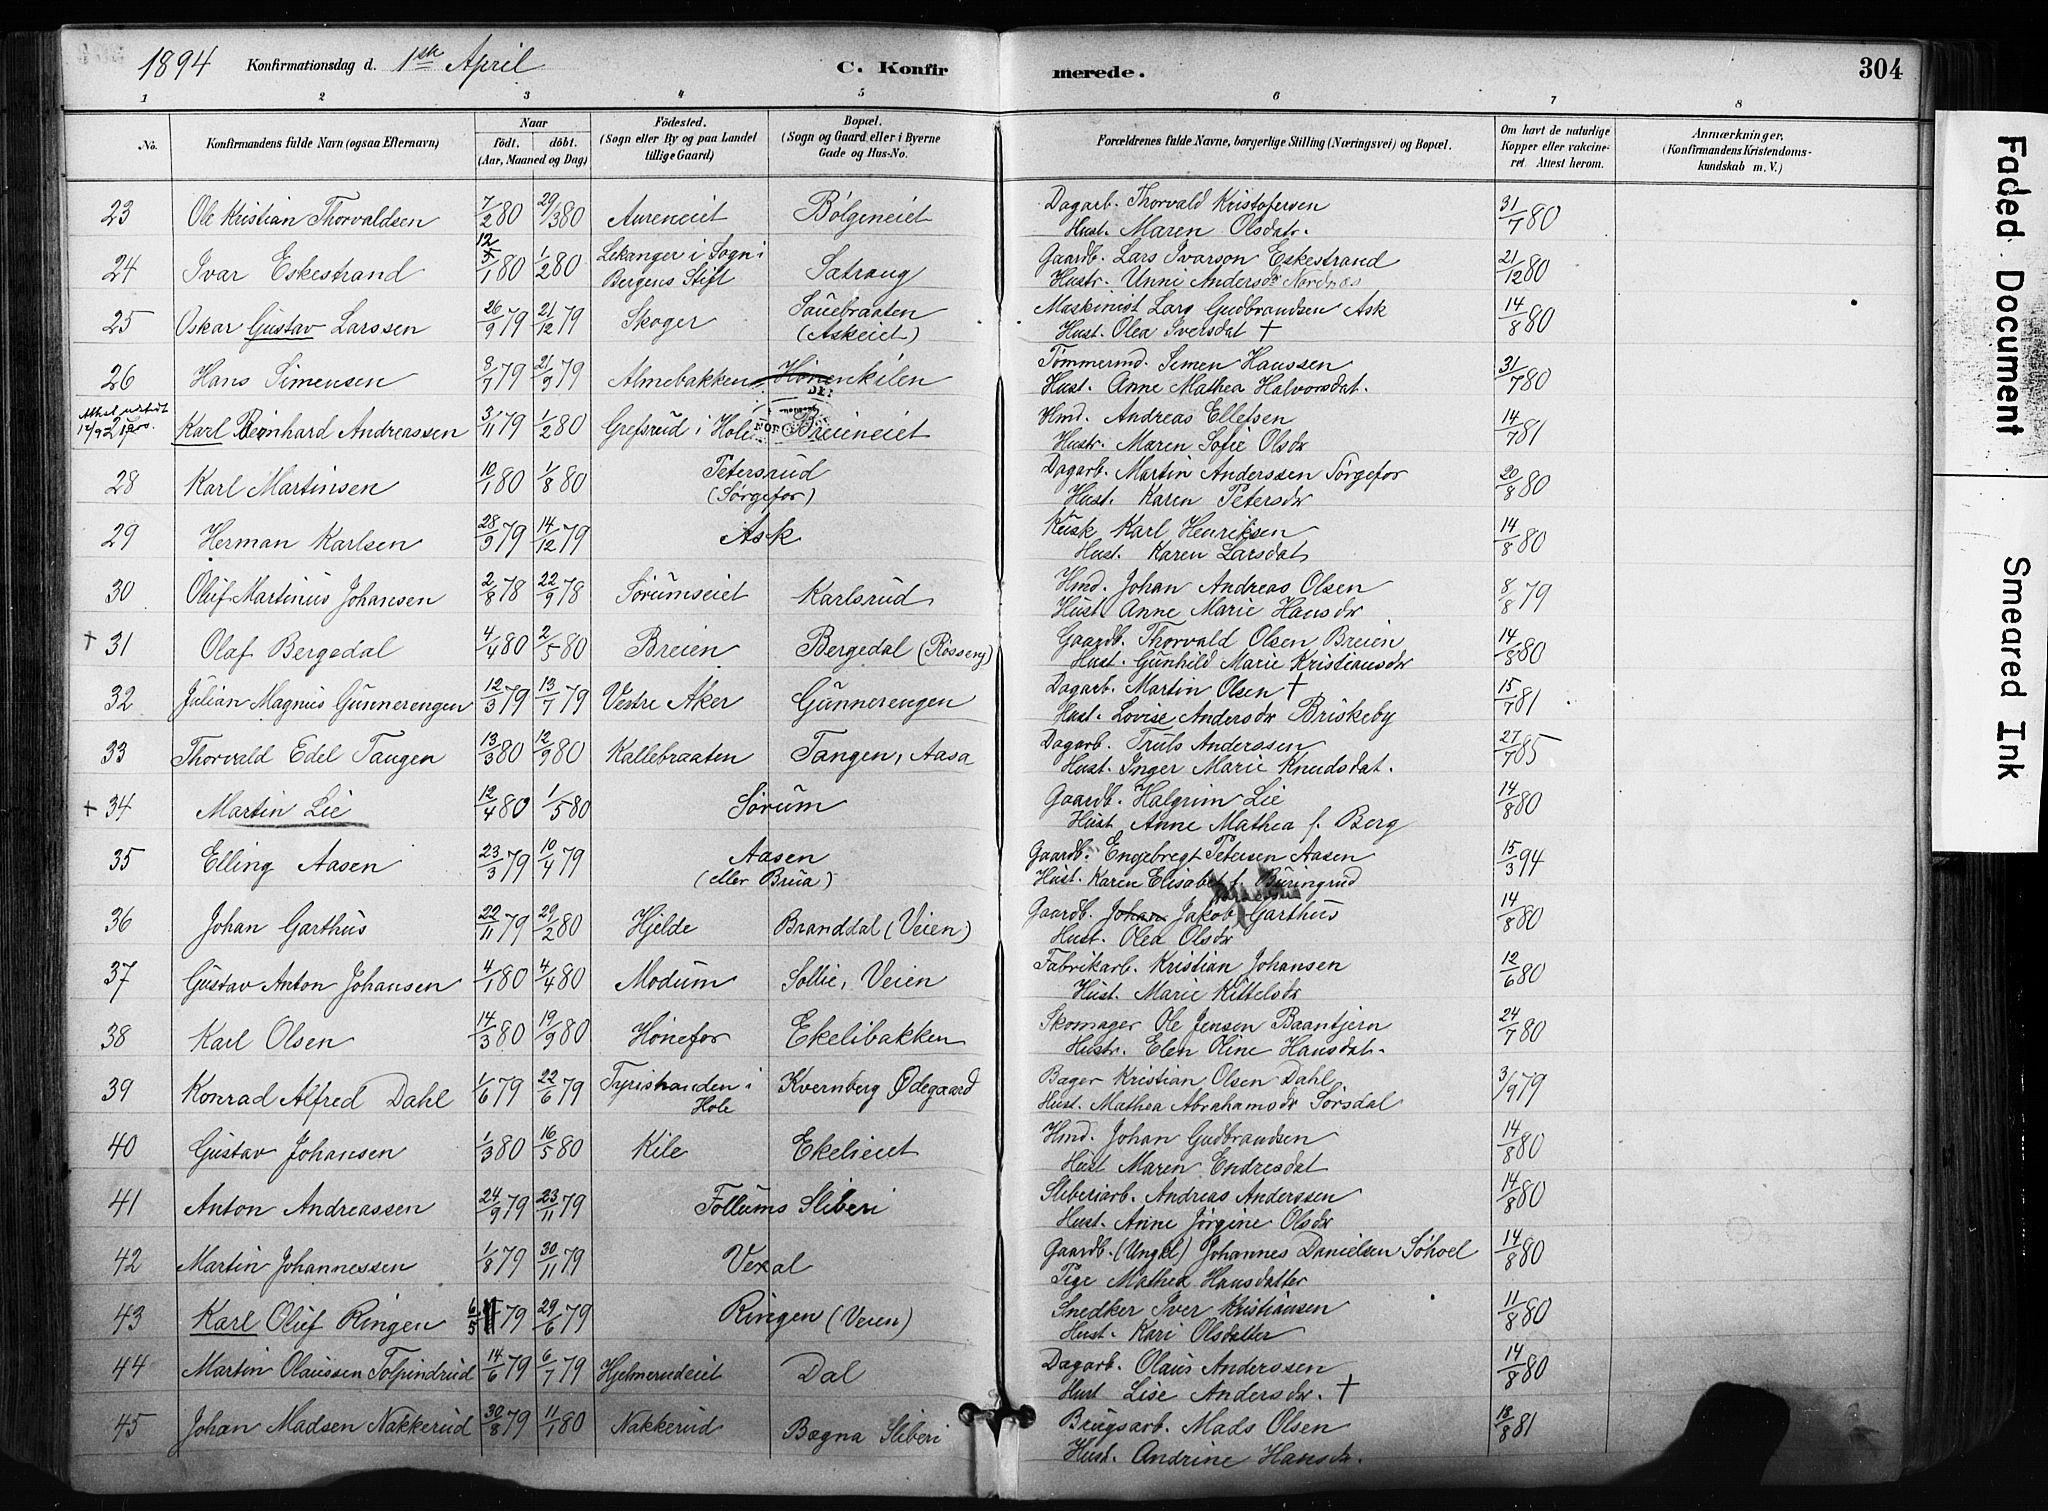 1894 Konfirmationsdag d. 1ste April C. Konfirmerede. 304
1 2 3 4 5 6 7 8
No. Konfirmandens fulde Navn (ogsaa Efternavn) Naar Født. døbt. (Aar, Maaned og Dag) Fødested. (Sogn eller By og paa Landet tillige Gaard) Bopæl. (Sogn og Gaard eller i Byerne Gade og Hus-No. Forældrenes fulde Navne, borgerlige Stilling (Næringsvei) og Bopæl. Om havt de naturlige Kopper eller vakcineret. Attest herom. Anmærkninger, (Konfirmandens Kristendomskundskab m. V.)
23 Ole Kristian Thorvaldsen 7/2 80 29/3 80 Aureneiet Bølgeneiet Dagarb. Thorvald Kristofersen 31/7 80
Hust. Maren Olsdatr.
24 Ivar Eskestrand 12/1 80 1/2 80 Lekanger i Sogn i Bergens Stift Satrang Gaardb. Lars Ivarson Eskestrand 21/12 80
Hustr. Unni Andersdr Nordnæs
25 Oskar Gustav Larssen 26/9 79 21/12 79 Skoger Sauebraaten (Askeiet) Maskinist Lars Gudbrandsen Ask 14/8 80
Hust. Olea Iversdat †
26 Hans Simensen 8/7 79 21/9 79 Almebakken Hønenkilen Tømmermd. Simen Hanssen 31/7 80
Hust. Anne Mathea Halvorsdat.
Karl Beinhard Andreassen 3/11 79 1/2 80 Grefsrud i Hole Breieneiet Hmd. Andreas Ellefsen 14/7 81
Hustr. Maren Sofie Olsdr
28 Karl Martinsen 10/1 80 1/8 80 Petersrud (Sørgefor) Dagarb. Martin Anderssen Sørgefor 20/8 80
Hust. Karen Petersdr
29 Herman Karlsen 28/9 79 14/12 79 Ask Kusk Karl Henriksen 14/8 80
Hust. Karen Larsdat
30 Oluf Martinus Johansen 2/8 78 22/9 78 Sørumseiet Karlsrud Hmd. Johan Andreas Olsen 8/8 79
Hust. Anne Marie Hansdr
† 31 Olaf Bergedal 4/4 80 2/5 80 Breien Bergedal (Røsseng) Gaardb. Thorvald Olsen Breien 14/8 80
Hust. Gunhild Marie Kristiansdr
32 Julian Magnus Gunnerengen 12/3 79 13/7 79 Vestre Aker Gunnerengen Dagarb. Martin Olsen † 15/7 81
Hust. Lovise Andersdr Briskeby
33 Thorvald Edel Tangen 13/3 80 12/9 80 Kallebraaten Tangen, Aasa Dagarb. Truls Anderssen 27/7 85
Hust. Inger Marie Knudsdat.
+ 34 Martin Lie 12/4 80 1/5 80 Sørum Gaardb. Halgrim Lie 14/8 80
Hust. Anne Mathea f. Berg
35 Elling Aasen 23/3 79 10/4 79 Aasen (eller Brua) Gaardb. Engebregt Petersen Aasen 15/3 94
Hust. Karen Elisabet f. Buringrud
36 Johan Garthus 22/11 79 29/2 80 Hjelde Branddal (Veien) Gaardb. Johan Jakob Garthus 14/8 80
Hust. Olea Olsdr
37 Gustav Anton Johansen 4/1 80 4/4 80 Modum Sollie, Veien Fabrikarb. Kristian Johansen 12/6 80
Hust. Marie Kittelsdr
38 Karl Olsen 14/3 80 19/9 80 Hønefos Ekelibakken Skomager Ole Jensen Baantjern 24/7 80
Hustr. Elen Oline Hansdat.
39 Konrad Alfred Dahl 1/6 79 22/6 79 Tyristranden i Hole Kvernberg Ødegaard Bager Kristian Olsen Dahl 3/9 79
Hust. Mathea Abrahamsdr Sørsdal
40 Gustav Johansen 1/3 80 16/5 80 Kile Ekelieiet Hmd. Johan Gudbrandsen 14/8 80
Hust Maren Endresdat
41 Anton Andreassen 24/9 79 23/11 79 Follums Sliberi Sliberiarb. Andreas Anderssen 14/8 80
Hust. Anne Jørgine Olsdr
42 Martin Johannessen 1/8 79 30/11 79 Vexal Gaardb. (Ungkl) Johannes Danielsen Søhoel 14/8 80
Pige Mathea Hansdatter
43 Karl Oluf Ringen 6/5 79 29/6 79 Ringen (Veien) Snedker Iver Kristiansen 11/8 80
Hust. Kari Olsdatter
44 Martin Olaussen Tolpindrud 14/6 79 6/7 79 Hjelmerudeiet Dal Dagarb. Olaus Anderssen 14/8 80
Hust Lise Andersdr. †
45 Johan Madsen Nakkerud 30/8 79 11/1 80 Nakkerud Bægna Sliberi Brugsarb. Mads Olsen 18/8 81
Hust. Andrine Hansdr.
Faded Document
Smeared Ink